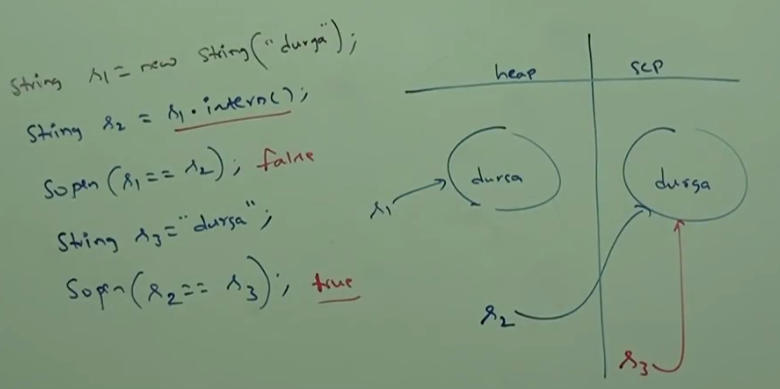 String s1 = new String("durga");
String s2 = s1.intern();
Sopln(s1 == s2); false
String s3 = "durga";
Sopln(s2 == s3); true
heap
scp
durga
durga
s1
s2
s3